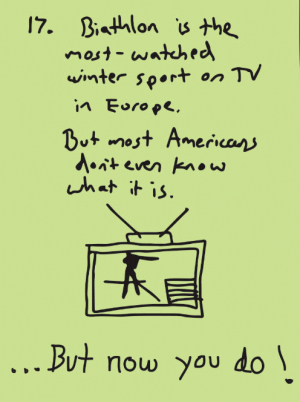 17. Biathlon is the
most-watched
winter sport on TV
in Europe.
But most Americans
don't even know
what it is.
...But now you do!